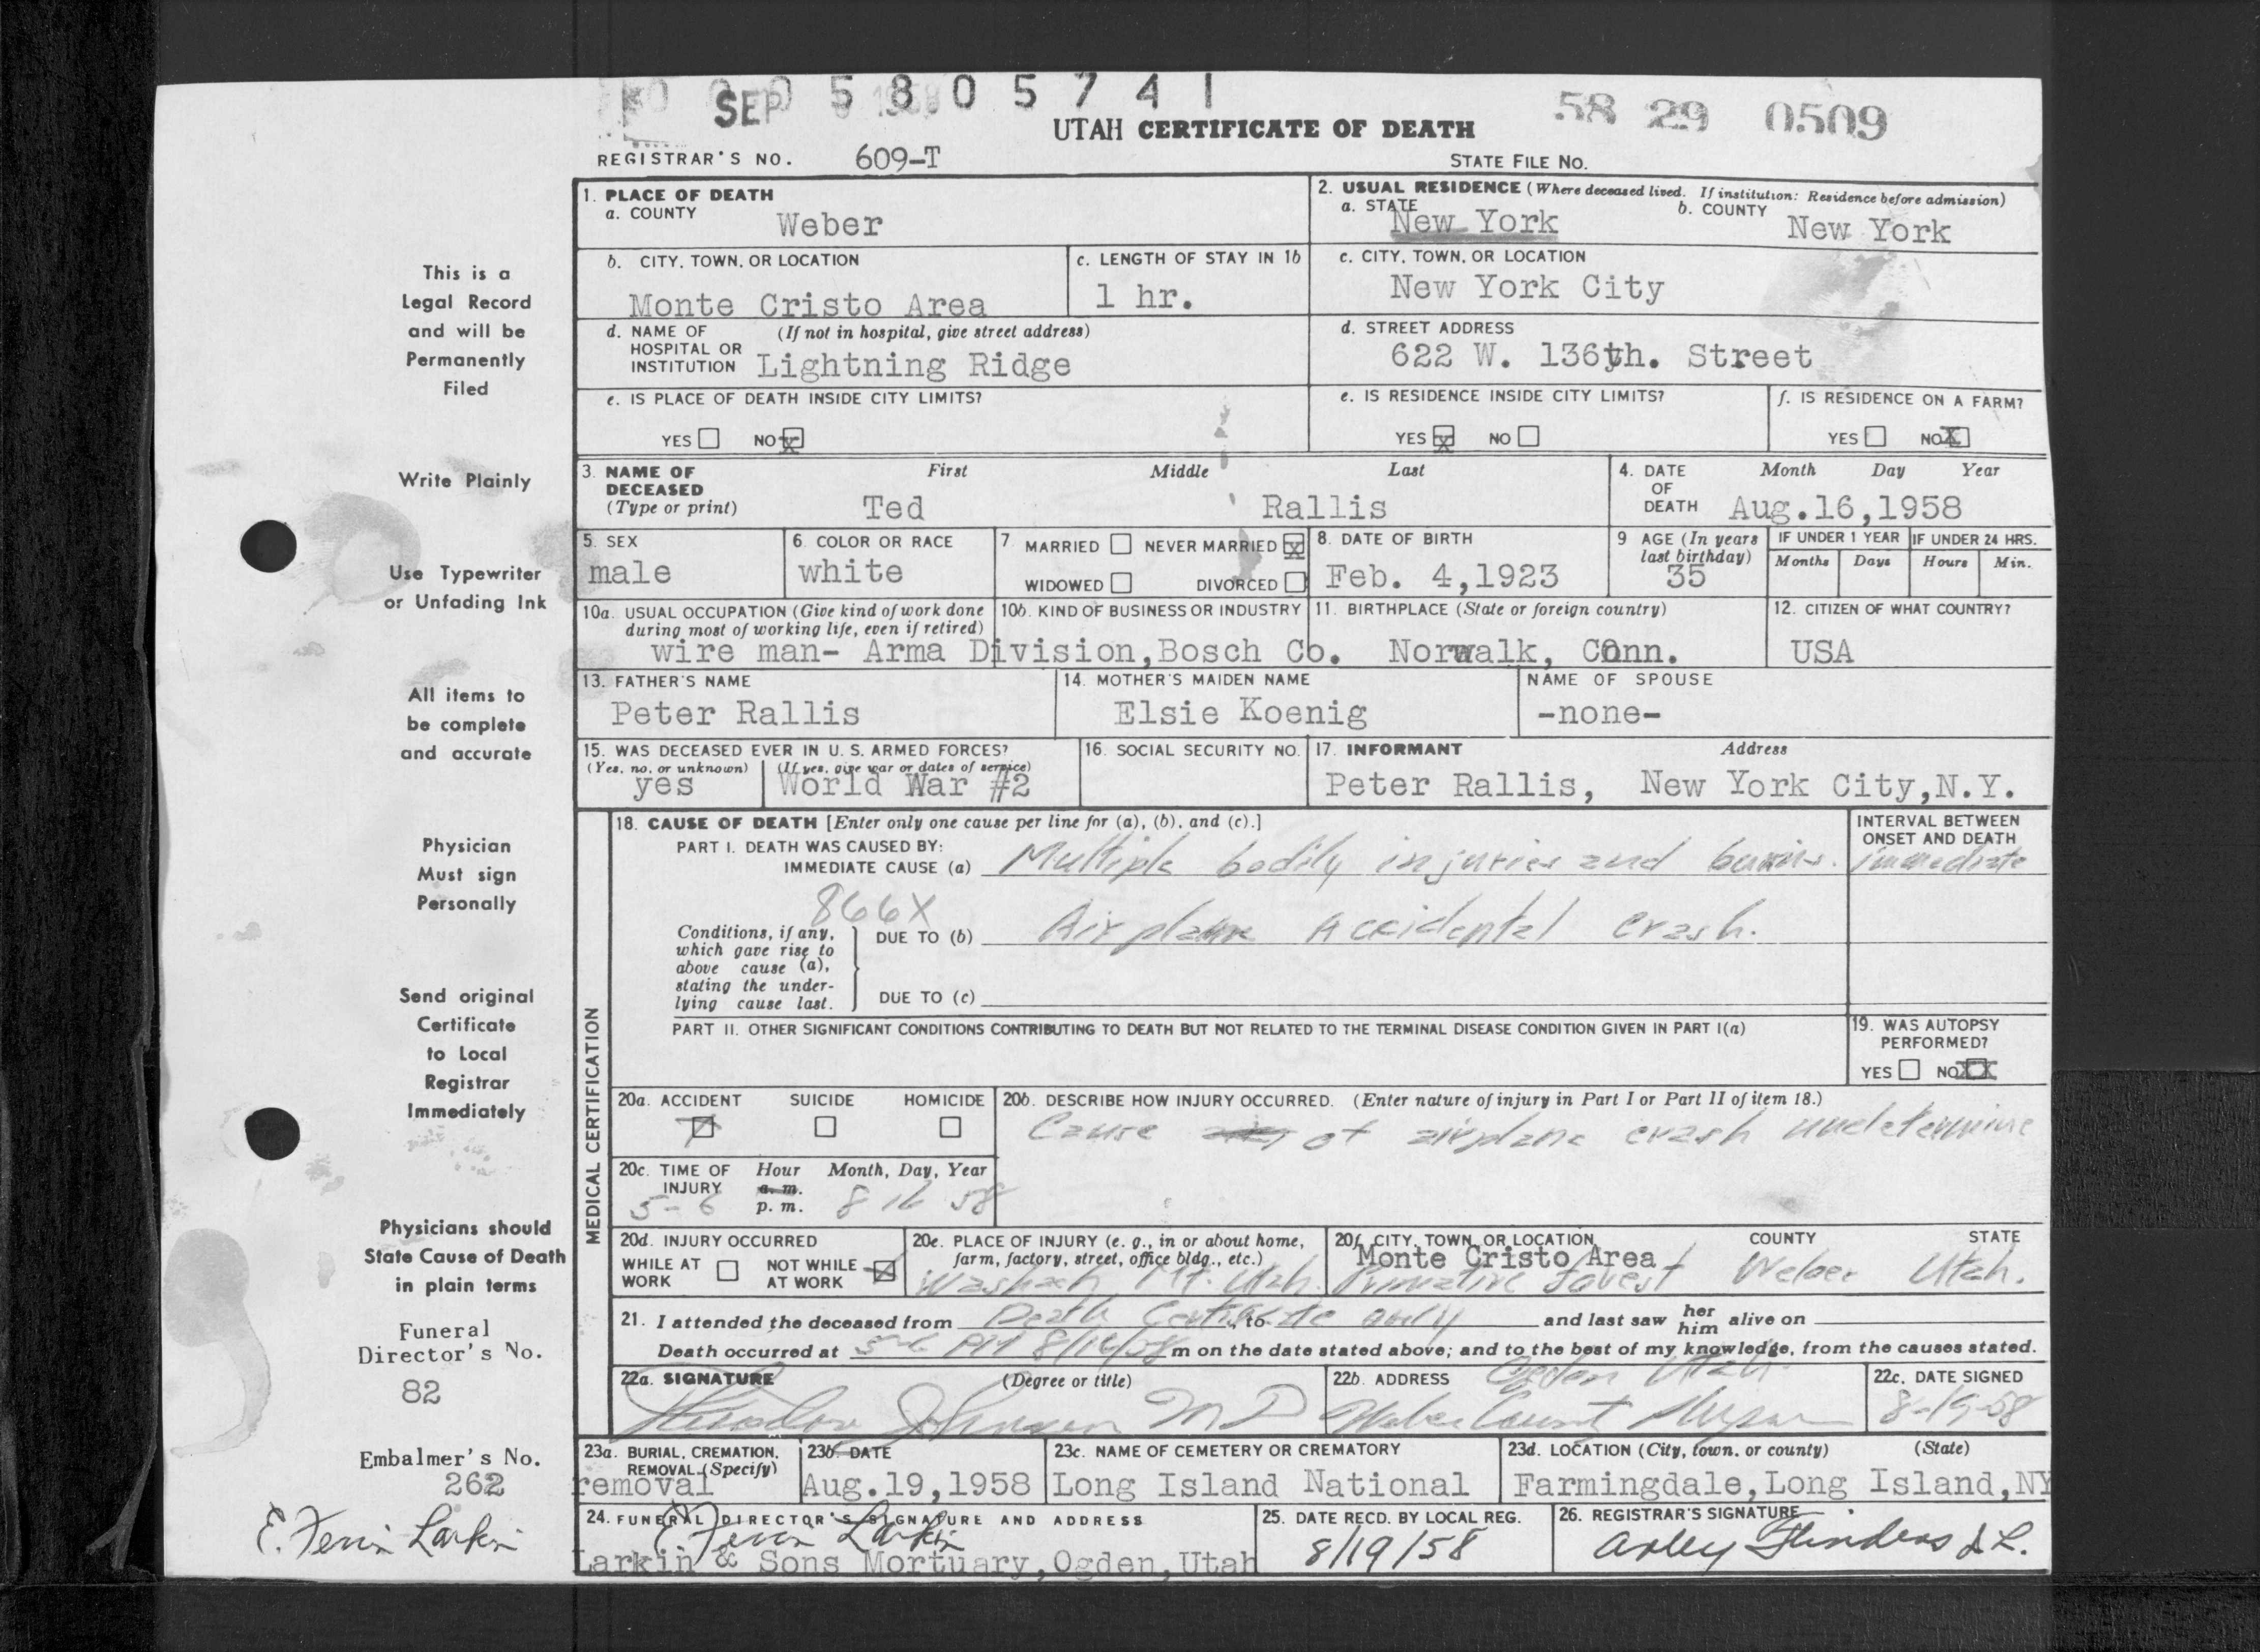 0 5 8 0 5 7 4 1
SEP 1958
58 29 0509
UTAH CERTIFICATE OF DEATH
REGISTRAR'S NO. 609-T
STATE FILE NO.
1. PLACE OF DEATH
a. COUNTY
Weber
2. USUAL RESIDENCE (Where deceased lived. If institution: Residence before admission)
a. STATE
New York
b. COUNTY
New York
b. CITY, TOWN, OR LOCATION
Monte Cristo Area
c. LENGTH OF STAY IN 1b
1 hr.
c. CITY, TOWN, OR LOCATION
New York City
d. NAME OF (If not in hospital, give street address)
HOSPITAL OR
INSTITUTION Lightning Ridge
d. STREET ADDRESS
622 W. 136th. Street
e. IS PLACE OF DEATH INSIDE CITY LIMITS?
YES NO X
e. IS RESIDENCE INSIDE CITY LIMITS?
YES X NO
f. IS RESIDENCE ON A FARM?
YES NO X
3. NAME OF
DECEASED
(Type or print)
First Middle Last
Ted Rallis
4. DATE
OF
DEATH
Month Day Year
Aug.16,1958
5. SEX
male
6. COLOR OR RACE
white
7 MARRIED NEVER MARRIED X
WIDOWED DIVORCED
8. DATE OF BIRTH
Feb. 4,1923
9 AGE (In years
last birthday)
35
IF UNDER 1 YEAR
Months Days
IF UNDER 24 HRS.
Hours Min.
10a. USUAL OCCUPATION (Give kind of work done
during most of working life, even if retired)
10b. KIND OF BUSINESS OR INDUSTRY
wire man- Arma Division,Bosch Co.
11. BIRTHPLACE (State or foreign country)
Norwalk, Conn.
12. CITIZEN OF WHAT COUNTRY?
USA
13. FATHER'S NAME
Peter Rallis
14. MOTHER'S MAIDEN NAME
Elsie Koenig
NAME OF SPOUSE
-none-
15. WAS DECEASED EVER IN U. S. ARMED FORCES?
(Yes, no, or unknown) (If yes, give war or dates of service)
yes World War #2
16. SOCIAL SECURITY NO.
17. INFORMANT Address
Peter Rallis, New York City,N.Y.
MEDICAL CERTIFICATION
18. CAUSE OF DEATH [Enter only one cause per line for (a), (b), and (c).]
INTERVAL BETWEEN
ONSET AND DEATH
PART I. DEATH WAS CAUSED BY:
IMMEDIATE CAUSE (a) Multiple bodily injuries and burns. immediate
866X
Conditions, if any,
which gave rise to
above cause (a),
stating the under-
lying cause last.
DUE TO (b) Airplane Accidental crash.
DUE TO (c)
PART II. OTHER SIGNIFICANT CONDITIONS CONTRIBUTING TO DEATH BUT NOT RELATED TO THE TERMINAL DISEASE CONDITION GIVEN IN PART I(a)
19. WAS AUTOPSY
PERFORMED?
YES NO XX
20a. ACCIDENT SUICIDE HOMICIDE
X
20b. DESCRIBE HOW INJURY OCCURRED. (Enter nature of injury in Part I or Part II of item 18.)
Cause of airplane crash undetermine
20c. TIME OF Hour Month, Day, Year
INJURY a. m.
p. m.
5-6 8 16 58
20d. INJURY OCCURRED
WHILE AT
WORK
NOT WHILE
AT WORK X
20e. PLACE OF INJURY (e. g., in or about home,
farm, factory, street, office bldg., etc.)
Washach Mt. Utah.
20f. CITY, TOWN, OR LOCATION COUNTY STATE
Monte Cristo Area
Primative forest Weber Utah.
21. I attended the deceased from Death Certificate only , to and last saw her
him alive on
Death occurred at 5-6 PM 8/16/58 m on the date stated above; and to the best of my knowledge, from the causes stated.
22a. SIGNATURE (Degree or title)
Theodore Johnson MD
22b. ADDRESS
Ogden Utah.
Weber County
22c. DATE SIGNED
8-19-58
23a. BURIAL, CREMATION,
REMOVAL (Specify)
removal
23b. DATE
Aug.19,1958
23c. NAME OF CEMETERY OR CREMATORY
Long Island National
23d. LOCATION (City, town, or county) (State)
Farmingdale,Long Island,NY
24. FUNERAL DIRECTOR'S SIGNATURE AND ADDRESS
E Ferrin Larkin
Larkin & Sons Mortuary,Ogden,Utah
25. DATE RECD. BY LOCAL REG.
8/19/58
26. REGISTRAR'S SIGNATURE
Arley Flinders
This is a
Legal Record
and will be
Permanently
Filed
Write Plainly
Use Typewriter
or Unfading Ink
All items to
be complete
and accurate
Physician
Must sign
Personally
Send original
Certificate
to Local
Registrar
Immediately
Physicians should
State Cause of Death
in plain terms
Funeral
Director's No.
82
Embalmer's No.
262
E. Ferrin Larkin